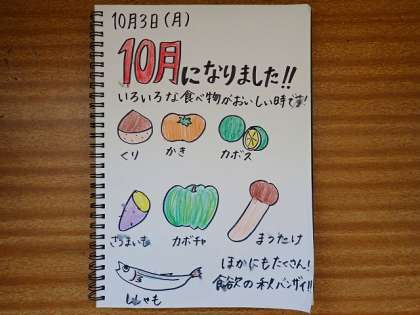 10月3日(月)
10月になりました!!
いろいろな食べ物がおいしい時です!
くり かき カボス
さつまいも カボチャ まつたけ
ほかにもたくさん!
食欲の秋バンザイ!!
ししゃも